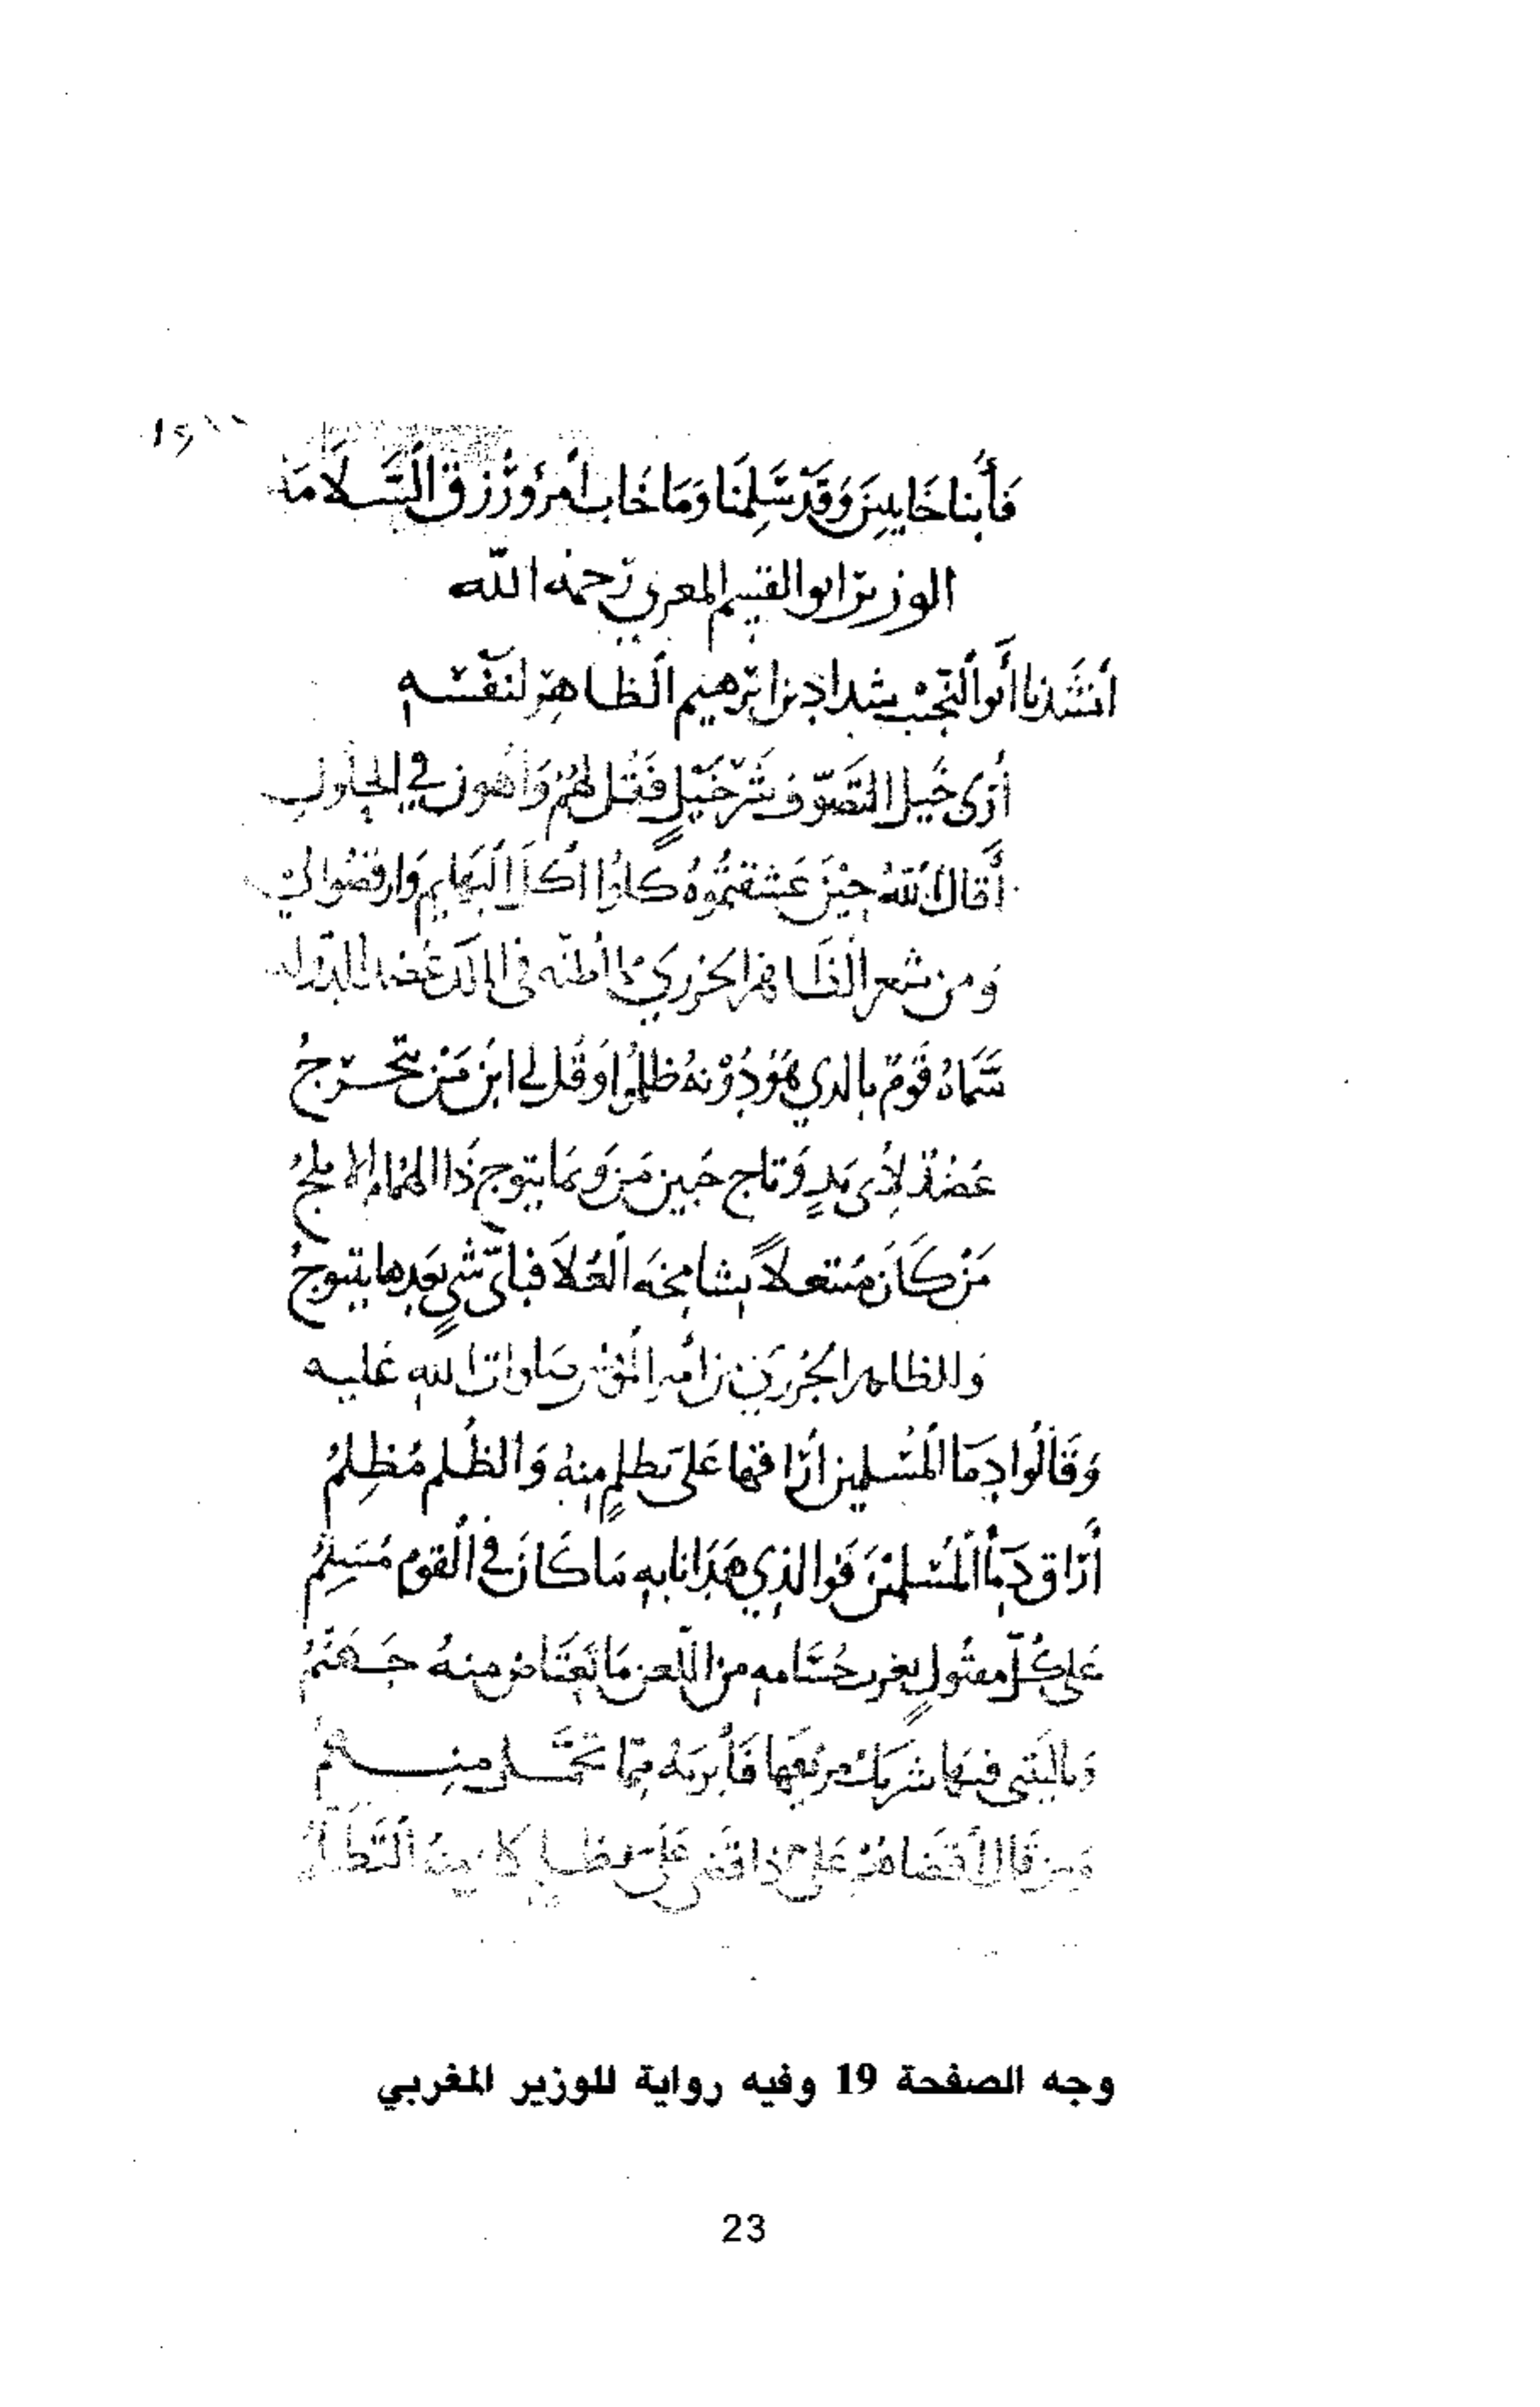 ١٩
فَأُبنا خَايبينَ وَقَدْ سَلِمْنَا وَمَا خَابَ أمرؤ رُزق السَّلَامَة
الوزير ابو القسم المغربي رَحمهُ الله
أنشَدَنا أبو النَّجيب شداد بن ابرهيم الظاهر لنفسه
أرَى جيل التَّصَوّف شَرّ جَيْلٍ فَقُل لهُمْ وَأهون في الحلول
أقال اللهُ حِيْنَ عَشقتمُوهُ كلُوا أكلَ البَهَايم وَارقصُوا لي
وَمن شعر الظَاهر الجزري في عضد الدولة
سَمَّاهُ قَومٌ بالذي هُوَ دُوْنهُ ظلمُوا وَقُل لي ابنُ مَنْ يتحَرّجُ
عَضُدٌ لأى يَدٍ وَتاج جَبين مَن وَبمَا يتوج ذَا الهُمَام الابلجُ
مَنْ كَانَ مُنتعلاً بشامخَه العُلَا فبأىّ شيٍ بَعدها يتتوجُ
وَللظاهر الجزري أمير صلوات الله عَليه
وَقَالُوا دِمَا المُسْلمين أرَاقها عَلىَ بَظلمٍ مِنهُ وَالظُلم مُظلِمُ
أرَاق دِمَا المُسْلمينَ فوالذي هَدَانا به مَا كانَ في القوم مُسَلِمُ
عَلى كُلّ مقتُولٍ بغرب حُسَامه من اللّعن مَا يَعْتَاضُ منهُ جَهَنَّمُ
وَيالَيتَني فيهَا شَريكٌ فَأُبريَهُ مِمَّا تَحَمَّل منهمُ
وَمن قَال عَلى ذا
وجه الصفحة 19 وفيه رواية للوزير المغربي
23